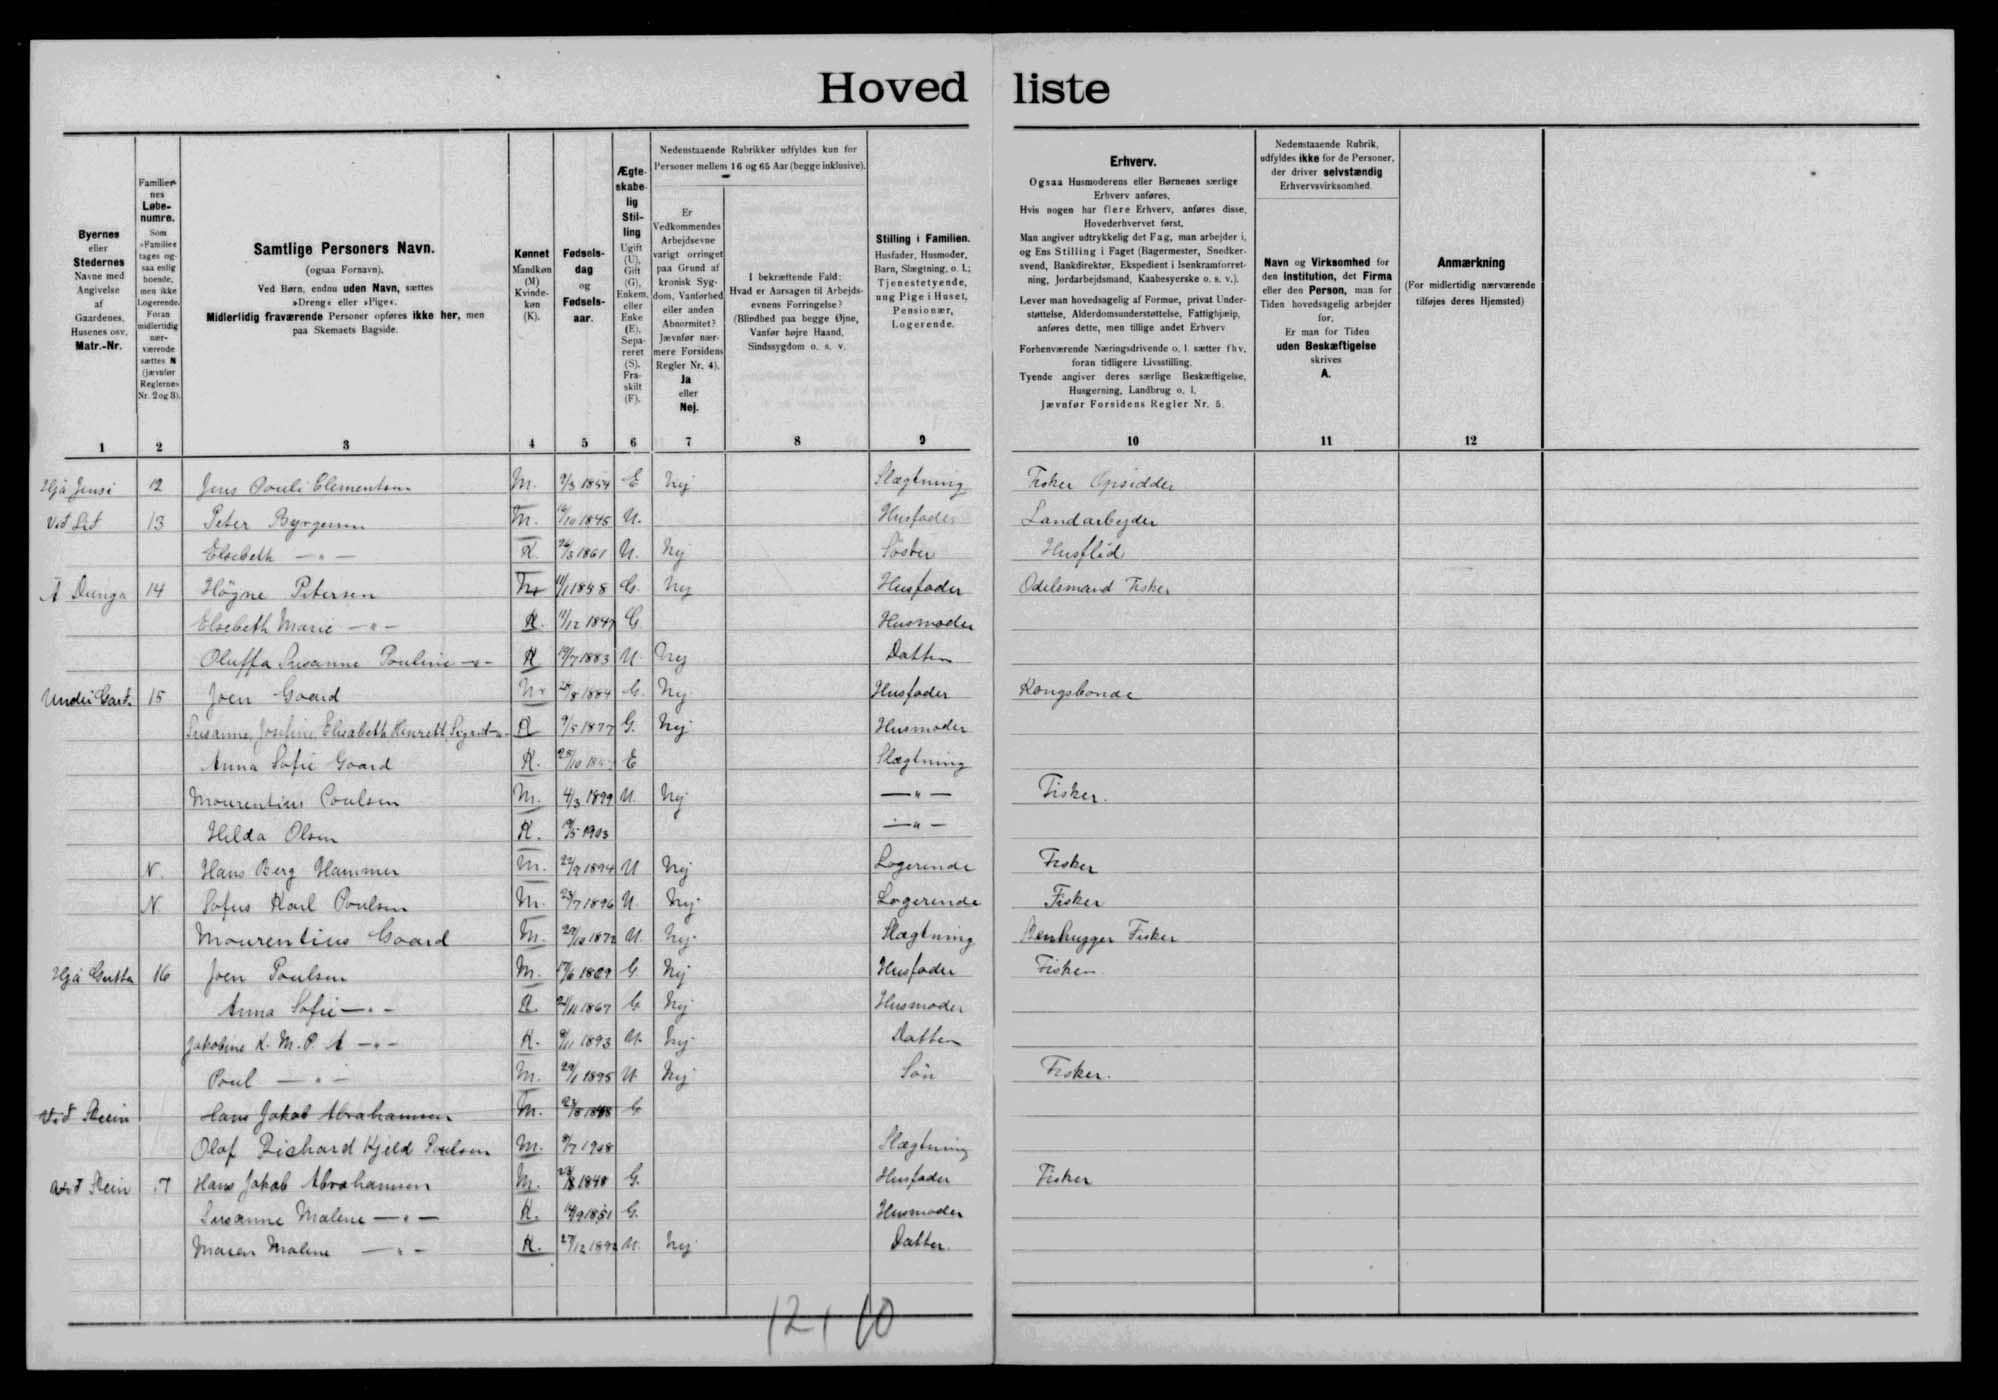 Hoved liste
Byernes
eller
Stedernes
Navne med
Angivelse
af
Gaardenes,
Husenes osv.
Matr.-Nr.
Familier-
nes
Løbe-
numre.
Som
»Familie«
tages og-
saa enlig
boende,
men ikke
Logerende.
Foran
midlertidig
nær-
værende
sættes N
(jævnfør
Reglernes
Nr. 2 og 3).
Samtlige Personers Navn.
(ogsaa Fornavn).
Ved Børn, endnu uden Navn, sættes
»Dreng« eller »Pige«.
Midlertidig fraværende Personer opføres ikke her, men
paa Skemaets Bagside.
Kønnet
Mandkøn
(M)
Kvinde-
køn
(K).
Fødsels-
dag
og
Fødsels-
aar.
Ægte-
skabe-
lig
Stil-
ling
Ugift
(U),
Gift
(G),
Enkem.
eller
Enke
(E),
Sepa-
reret
(S),
Fra-
skilt
(F).
Nedenstaaende Rubrikker udfyldes kun for
Personer mellem 16 og 65 Aar (begge inklusive).
Er
Vedkommendes
Arbejdsevne
varigt forringet
paa Grund af
kronisk Syg-
dom, Vanførhed
eller anden
Abnormitet?
Jævnfør nær-
mere Forsidens
Regler Nr. 4).
Ja
eller
Nej.
I bekræftende Fald:
Hvad er Aarsagen til Arbejds-
evnens Forringelse?
(Blindhed paa begge Øjne,
Vanfør højre Haand,
Sindssygdom o. s. v.
Stilling i Familien.
Husfader, Husmoder,
Barn, Slægtning, o. l.;
Tjenestetyende,
ung Pige i Huset,
Pensionær,
Logerende.
Erhverv.
Ogsaa Husmoderens eller Børnenes særlige
Erhverv anføres.
Hvis nogen har flere Erhverv, anføres disse,
Hovederhvervet først.
Man angiver udtrykkelig det Fag, man arbejder i,
og Ens Stilling i Faget (Bagermester, Snedker-
svend, Bankdirektør, Ekspedient i Isenkramforret-
ning, Jordarbejdsmand, Kaabesyerske o. s. v.).
Lever man hovedsagelig af Formue, privat Under-
støttelse, Alderdomsunderstøttelse, Fattighjælp,
anføres dette, men tillige andet Erhverv
Forhenværende Næringsdrivende o. l. sætter fhv.
foran tidligere Livsstilling.
Tyende angiver deres særlige Beskæftigelse,
Husgerning, Landbrug o. l.
Jævnfør Forsidens Regler Nr. 5.
Nedenstaaende Rubrik,
udfyldes ikke for de Personer,
der driver selvstændig
Erhvervsvirksomhed.
Navn og Virksomhed for
den Institution, det Firma
eller den Person, man for
Tiden hovedsagelig arbejder
for.
Er man for Tiden
uden Beskæftigelse
skrives
A.
Anmærkning
(For midlertidig nærværende
tilføjes deres Hjemsted)
1 2 3 4 5 6 7 8 9 10 11 12
Hjá Jensi 12 Jens Pouli Clementsen M. 9/3 1854 E Nej Slægtning Fisker Opsidder
Vid Lid 13 Peter Byrgesen M. 1845 U. Husfader Landarbejder
Elsebeth —〃— K. 1861 U. Nej Söster Husflid
Á Dunga 14 Högne Petersen M. 11/1 1858 G. Nej Husfader Odelsmand Fisker
Elsebeth Marie —〃— K. 11/12 1847 G. Husmoder
Oluffa Susanne Pouline —〃— K 19/7 1883 U. Nej Datter
Undir Gard. 15 Joen Gaard M. 25/8 1884 G. Nej Husfader Kongsbonde
Susanne, Josefine, Elisabeth, Henrett, Sigrid —〃— K 9/5 1877 G. Nej Husmoder
Anna Sofie Gaard K. E Slægtning
Mourentius Poulsen M. 4/3 1899 U. Nej —〃— Fisker.
Hilda Olsen K. 1903 —〃—
N. Hans Berg Hammer M. 22/9 1894 U Nej Logerende Fisker
N. Sofus Karl Poulsen M. 23/7 1896 U. Nej. Logerende Fisker
Mourentius Gaard M. 29/10 1872 U. Nej. Slægtning Stenhugger Fisker
Hjá Gutta 16 Joen Poulsen M. 17/6 1869 G Nej Husfader Fisker
Anna Sofie —〃— K. 21/11 1867 G Nej Husmoder
Jakobine K. M. P. A —〃— K. 8/11 1893 U. Nej. Datter
Poul —〃— M. 29/1 1895 U. Nej Sön Fisker.
Vid Stein Hans Jakob Abrahamsen M. 23/8 1848 G
Olaf Richard Kjeld Poulsen M. 9/7 1908 Slægtning
Vid Stein 17 Hans Jakob Abrahamsen M. 23/8 1848 G. Husfader Fisker
Susanne Malene —〃— K. 1851 G. Husmoder
Maren Malene —〃— K. 27/12 1892 U. Nej. Datter.
12 + 10